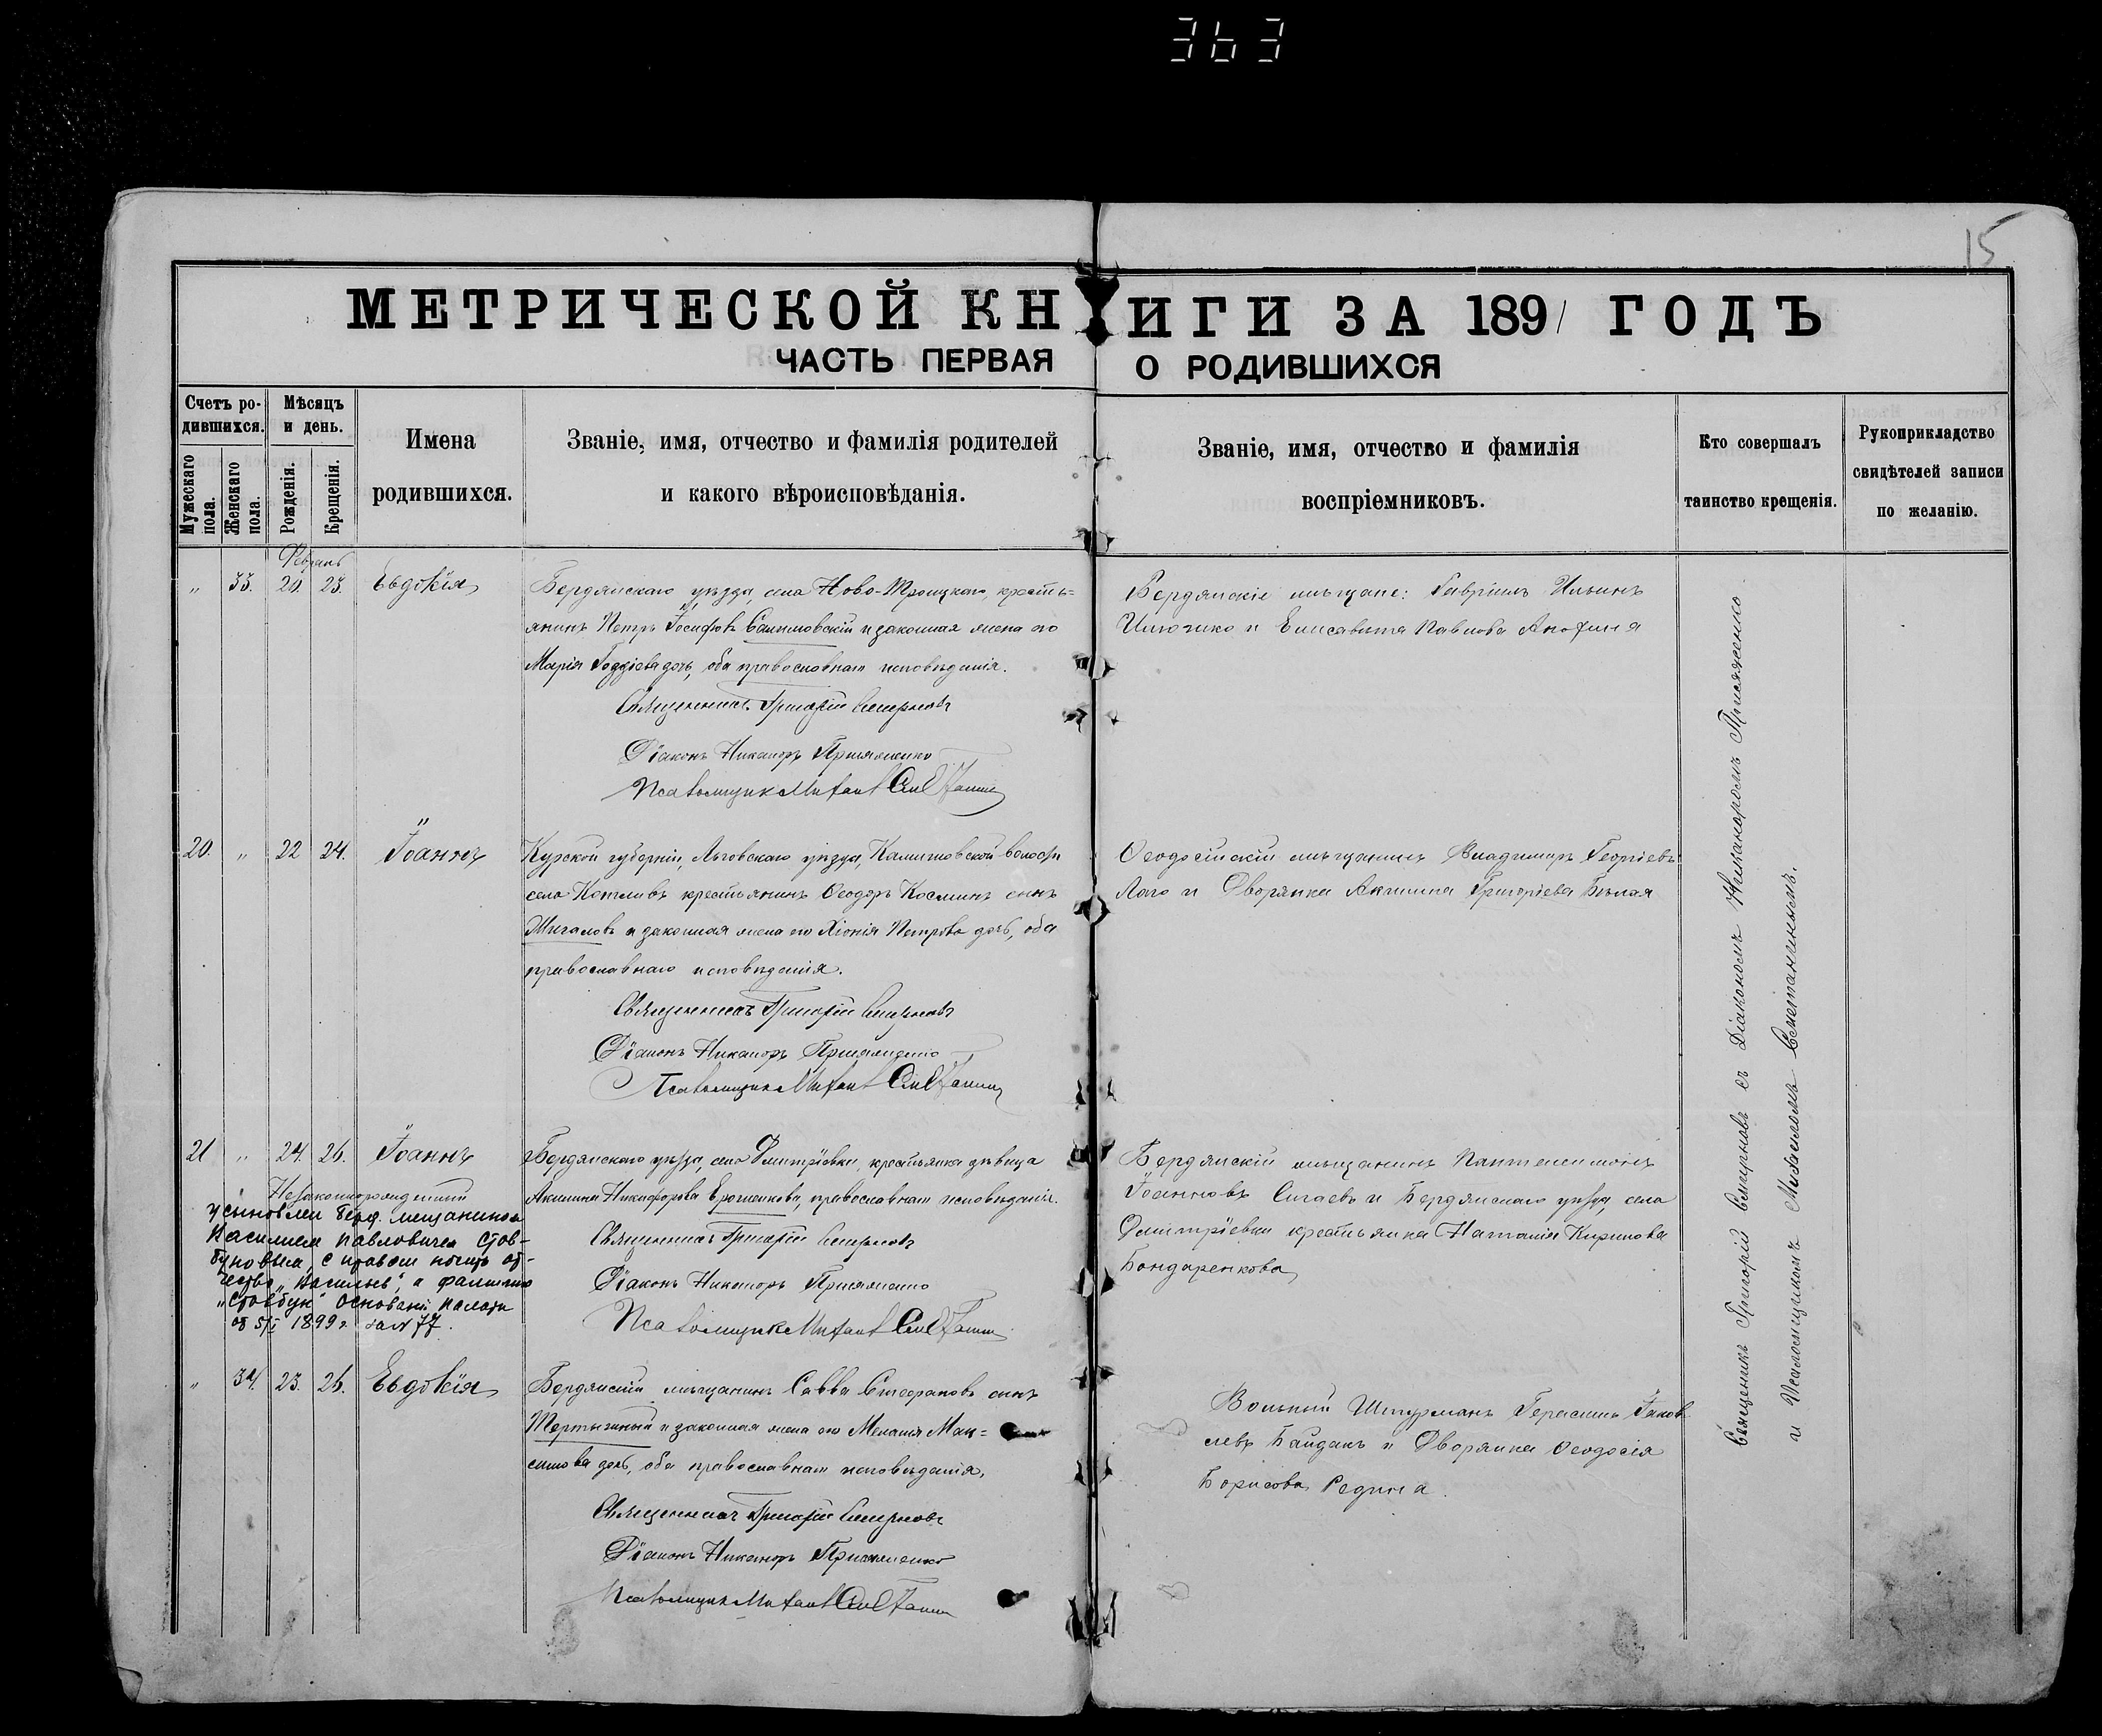 363
15
МЕТРИЧЕСКОЙ КНИГИ ЗА 1891 ГОДЪ
ЧАСТЬ ПЕРВАЯ О РОДИВШИХСЯ
Счетъ ро-
дившихся.
Мужескаго пола.
Женскаго пола.
Мѣсяцъ
и день.
Рожденія.
Крещенія.
Имена
родившихся.
Званіе, имя, отчество и фамилія родителей
и какого вѣроисповѣданія.
Званіе, имя, отчество и фамилія
воспріемниковъ.
Кто совершалъ
таинство крещенія.
Рукоприкладство
свидѣтелей записи
по желанію.
Февраль
" 33. 20. 23. Евдокія
Бердянскаго уѣзда, села Ново-Троицкаго, кресть=
янинъ Петръ Іосифовъ и законная жена его
Марія дочь, оба православнаго исповѣданія.
Священникъ Григорій Смирновъ
Діаконъ Никаноръ Присяженко
Псаломщикъ Михаилъ
Бердянскіе мѣщане: Гавріилъ Ильинъ
и Елисавета Павлова
20. " 22 24. Іоаннъ
Курской губерніи, Льговскаго уѣзда, волости
села крестьянинъ Ѳеодоръ Косминъ сынъ
Шигаловъ и законная жена его Хіонія Петрова дочь, оба
православнаго исповѣданія.
Священникъ Григорій Смирновъ
Діаконъ Никаноръ Присяженко
Псаломщикъ Михаилъ
Ѳеодосійскій мѣщанинъ Владимиръ Георгіевъ
и Дворянка Акилина Григоріева Бѣлая
21 " 24. 26. Іоаннъ
Незаконнорожденный
усыновлен берд. мещанином
Василием Павловичем Стов-
буновым, с правом носить от-
чество „Васильев", и фамилию
„Стовбун" палаты
от 5/I 1899 г. за № 77.
Бердянскаго уѣзда, села Дмитріевки, крестьянка дѣвица
Акилина Никифорова Ерошенкова, православнаго исповѣданія.
Священникъ Григорій Смирновъ
Діаконъ Никаноръ Присяженко
Псаломщикъ Михаилъ
Бердянскій мѣщанинъ Пантелеимонъ
Іоанновъ Сигаевъ и Бердянскаго уѣзда, села
Дмитріевки крестьянка Наталія Кирилова
Бондаренкова
" 34. 23. 26. Евдокія
Бердянскій мѣщанинъ Савва Стефановъ сынъ
и законная жена его Меланія Мак=
симова дочь, оба православнаго исповѣданія.
Священникъ Григорій Смирновъ
Діаконъ Никаноръ Присяженко
Псаломщикъ Михаилъ
Вольный Штурманъ Герасимъ Іаков
левъ Байданъ и Дворянка Ѳеодосія
Борисова Редина.
Священникъ Григорій Смирновъ съ Діакономъ Никаноромъ Присяженко
и Псаломщикомъ Михаиломъ Сметаненнымъ.